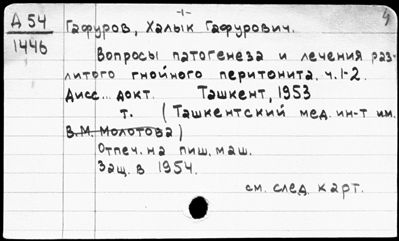 -1-
А 54
1446
Гафуров, Халык Гафурович.
Вопросы патогенеза и лечения раз-
литого гнойного перитонита. ч. 1-2.
Дисс... докт. Ташкент, 1953
т. (Ташкентский мед. ин-т им.
В.М. Молотова)
Отпеч. на пиш. маш.
Защ. в 1954.
см. след. карт.